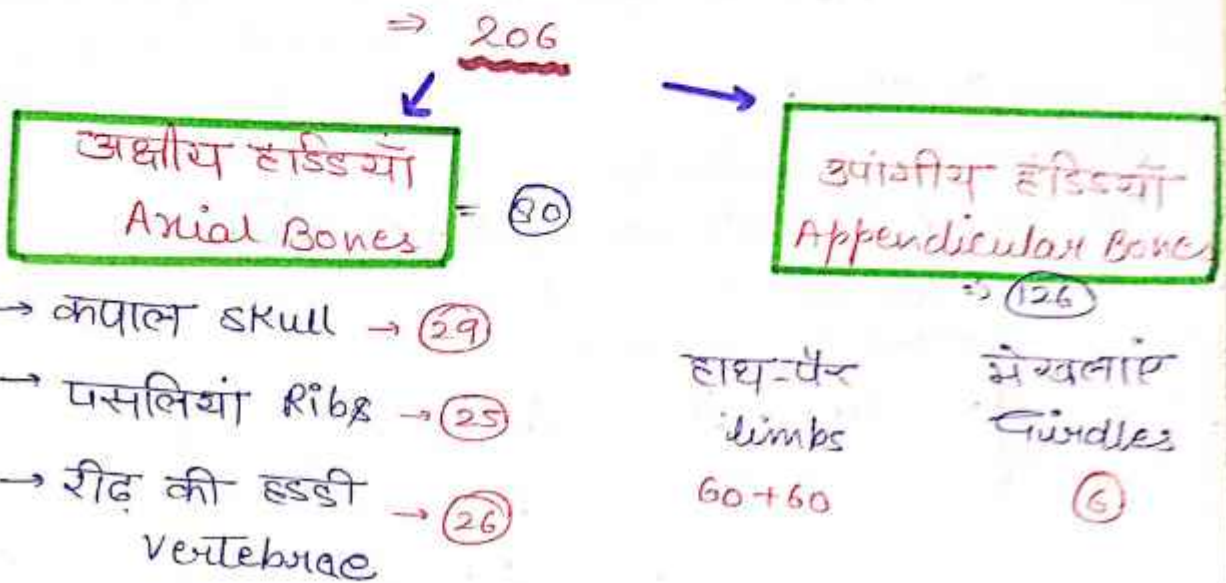 ⇒ 206
अक्षीय हडिडयाँ
Axial Bones = 80
→ कपाल Skull → 29
→ पसलियां Ribs → 25
→ रीढ़ की हडडी → 26
Vertebrae
उपांगीय हडिडयाँ
Appendicular Bones
⇒ 126
हाथ-पैर
limbs
60+60
मेखलाएं
Girdles
6